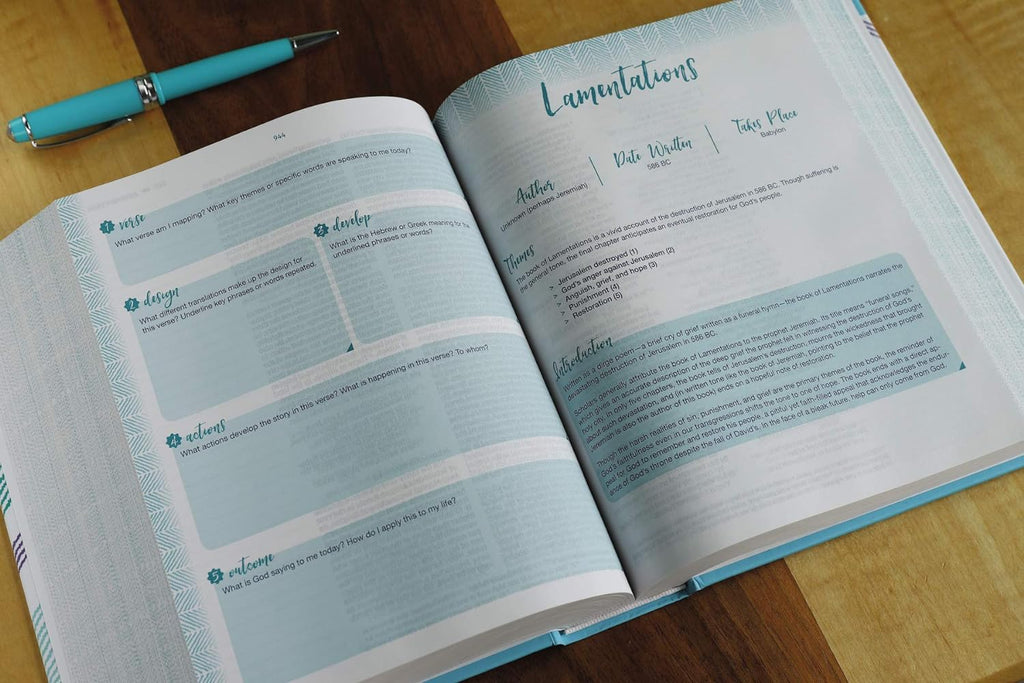 944
1 verse
What verse am I mapping? What key themes or specific words are speaking to me today?
2 design
What different translations make up the design for
this verse? Underline key phrases or words repeated.
3 develop
What is the Hebrew or Greek meaning for the
underlined phrases or words?
4 actions
What actions develop the story in this verse? What is happening in this verse? To whom?
5 outcome
What is God saying to me today? How do I apply this to my life?
Lamentations
Author
Unknown (perhaps Jeremiah)
Date Written
586 BC
Takes Place
Babylon
Themes
The book of Lamentations is a vivid account of the destruction of Jerusalem in 586 BC. Though suffering is
the general tone, the final chapter anticipates an eventual restoration for God's people.
> Jerusalem destroyed (1)
> God's anger against Jerusalem (2)
> Anguish, grief, and hope (3)
> Punishment (4)
> Restoration (5)
Introduction
Written as a dirge poem—a brief cry of grief written as a funeral hymn—the book of Lamentations narrates the
devastating destruction of Jerusalem in 586 BC.
Scholars generally attribute the book of Lamentations to the prophet Jeremiah. Its title means "funeral songs,"
which gives an accurate description of the deep grief the prophet felt in witnessing the destruction of God's
holy city. In only five chapters, the book tells of Jerusalem's destruction, mourns the wickedness that brought
about such devastation, and (in written tone like the book of Jeremiah, pointing to the belief that the prophet
Jeremiah is also the author of this book) ends on a hopeful note of restoration.
Though the harsh realities of sin, punishment, and grief are the primary themes of the book, the reminder of
God's faithfulness even in our transgressions shifts the tone to one of hope. The book ends with a direct ap-
peal for God to remember and restore his people, a pitiful yet faith-filled appeal that acknowledges the endur-
ance of God's throne despite the fall of David's. In the face of a bleak future, help can only come from God.